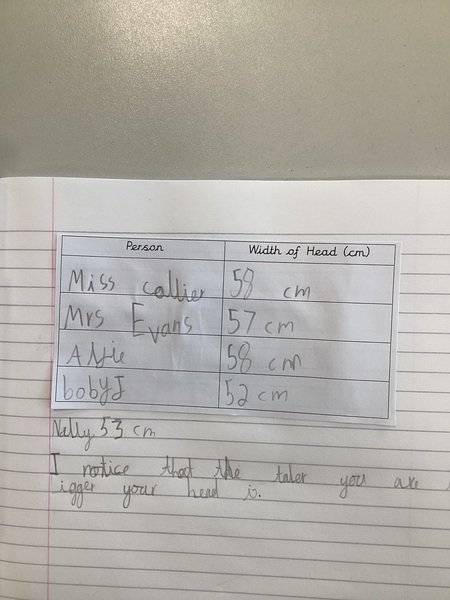 Person Width of Head (cm)
Miss collier 58 cm
Mrs Evans 57 cm
Alfie 58 cm
bobyJ 52 cm
Nelly 53 cm
I nortice that the taler you are
igger your head is.